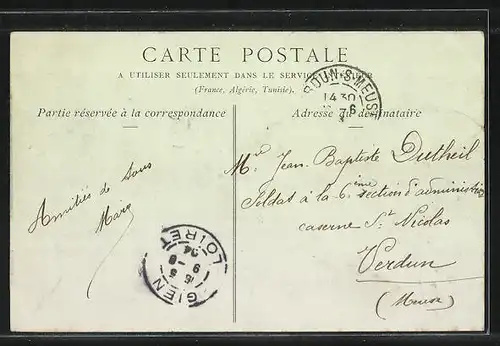 CARTE POSTALE
A UTILISER SEULEMENT DANS LE SERVICE INTÉRIEUR
(France, Algérie, Tunisie).
Partie réservée à la correspondance
Adresse du destinataire
DUN-S-MEUSE
14 30
6
Amitiés de tous
Mr Jean Baptiste Dutheil
Soldat à la 6ième section d'administration
caserne St Nicolas
Verdun
(Meuse)
GIEN
LOIRET